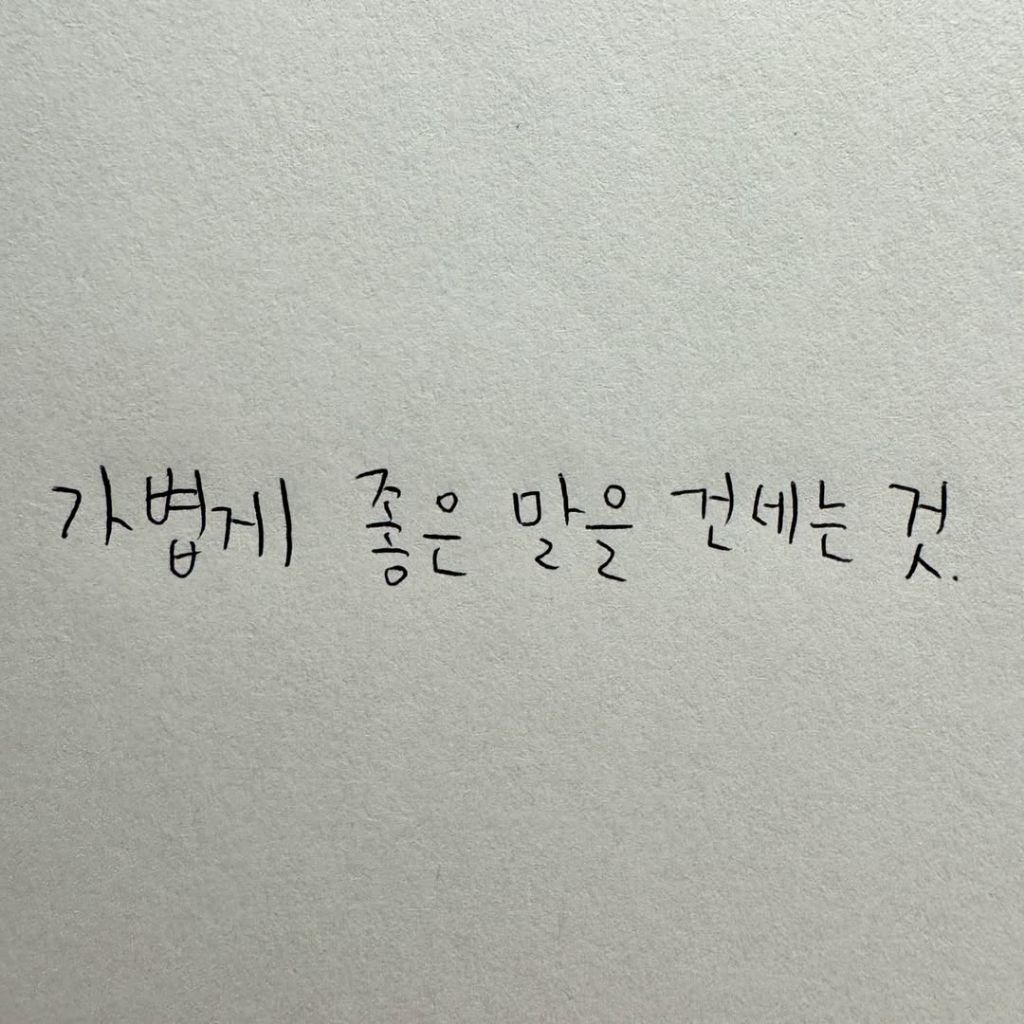 가볍게 좋은 말을 건네는 것.